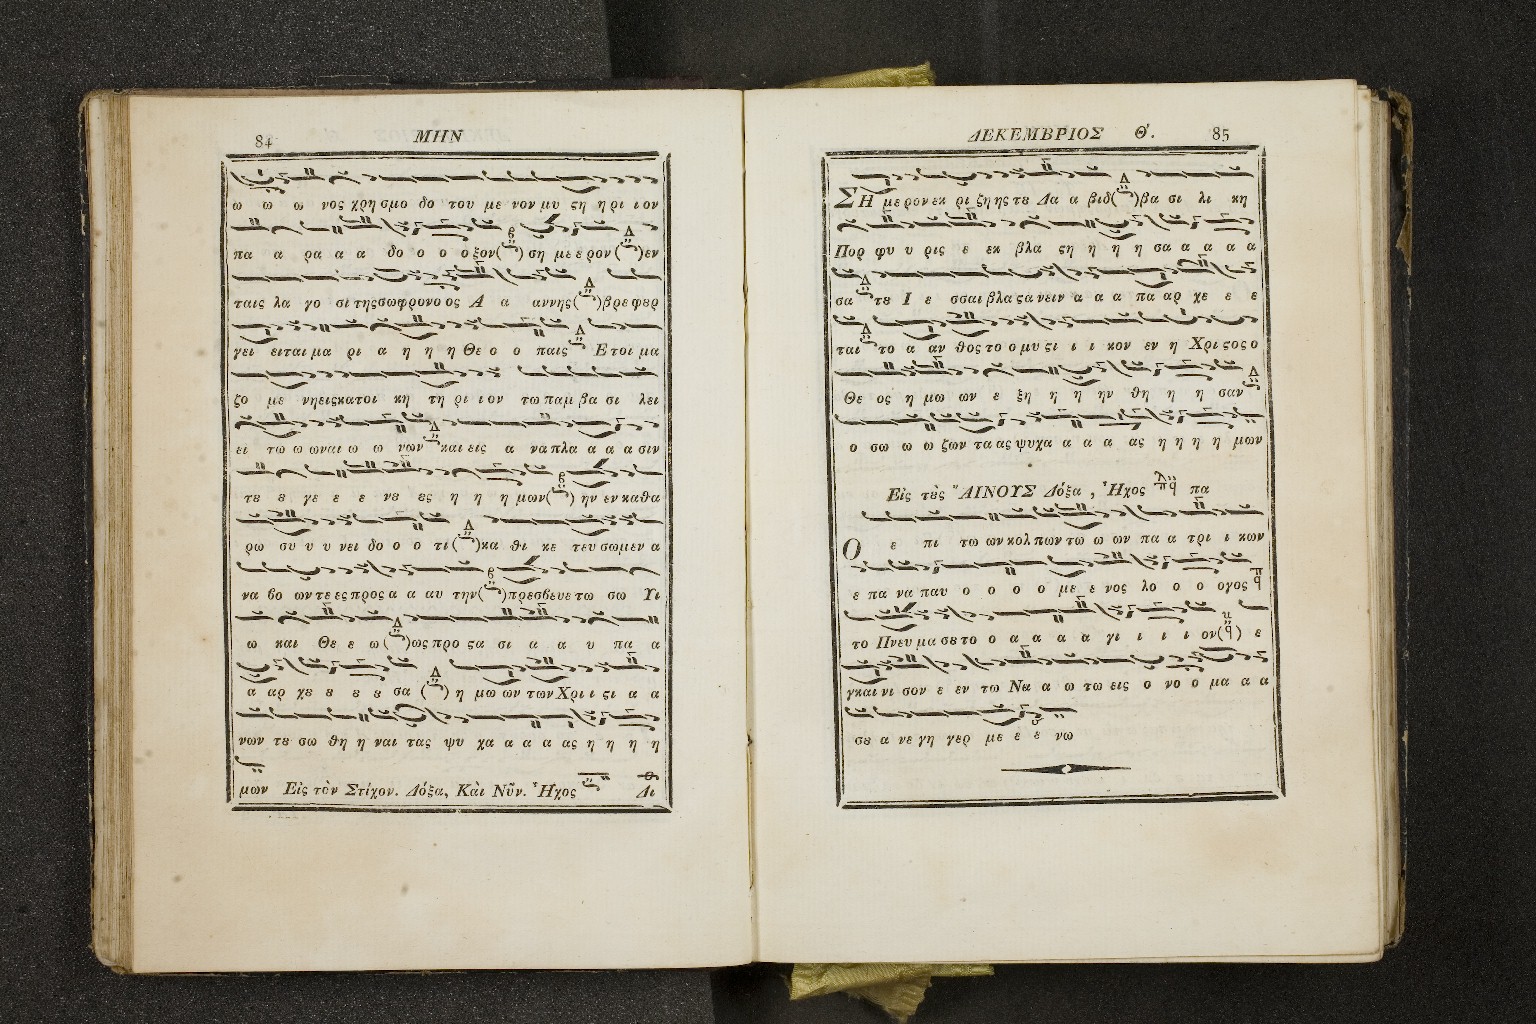 84 ΜΗΝ
ω ω ω νος χρη σμο δο του με νον μυ ςη η ρι ι ον
πα α ρα α α δο ο ο ο ξον ση με ε ρον εν
ταις λα γο σι της σωφρονο ος Α α αννης βρεφȣρ
γει ειται μα ρι α η η η Θε ο ο παις Ετοι μα
ζο με νη εις κατοι κη τη ρι ι ον τω παμ βα σι λει
ει τω ω ωναι ω ω νων και εις α να πλα α α α σιν
τȣ ȣ γε ε ε νȣ ȣς η η η μων ην εν καθα
ρω συ υ υ νει δο ο ο τι κα θι κε τευ σωμεν α
να βο ων τε ες προς α α αυ την πρεσβευε τω σω Υι
ω και Θε ε ω ως προ ςα σι α α υ πα α
α αρ χȣ ȣ ȣ ȣ σα η μω ων των Χρι ι ςι α α
νων τȣ σω θη η ναι τας ψυ χα α α α ας η η η η
μων Εἰς τὸν Στίχον. Δόξα, Καὶ Νῦν. Ἦχος Δι
ΔΕΚΕΜΒΡΙΟΣ Θ'. 85
ΣΗ με ρον εκ ρι ζη ης τȣ Δα α βιδ βα σι λι κη
Πορ φυ υ ρις ε εκ βλα ςη η η η σα α α α α
σα τȣ Ι ε σσαι βλα ςα νειν α α α πα αρ χε ε ε
ται το α αν θος το ο μυ ςι ι ι κον εν η Χρι ςος ο
Θε ος η μω ων ε ξη η η ην θη η η σαν
ο σω ω ω ζων τα ας ψυχα α α α ας η η η η μων
Εἰς τȣ̀ς ΑΙΝΟΥΣ Δόξα, Ἦχος πα
Ο ε πι τω ων κολ πων τω ω ων πα α τρι ι κων
ε πα να παυ ο ο ο ο με ε νος λο ο ο ογος
το Πνευ μα σȣ το ο α α α α γι ι ι ι ον ε
γκαι νι σον ε εν τω Να α ω τω εις ο νο ο μα α α
σȣ α νε γη γερ με ε ε νω